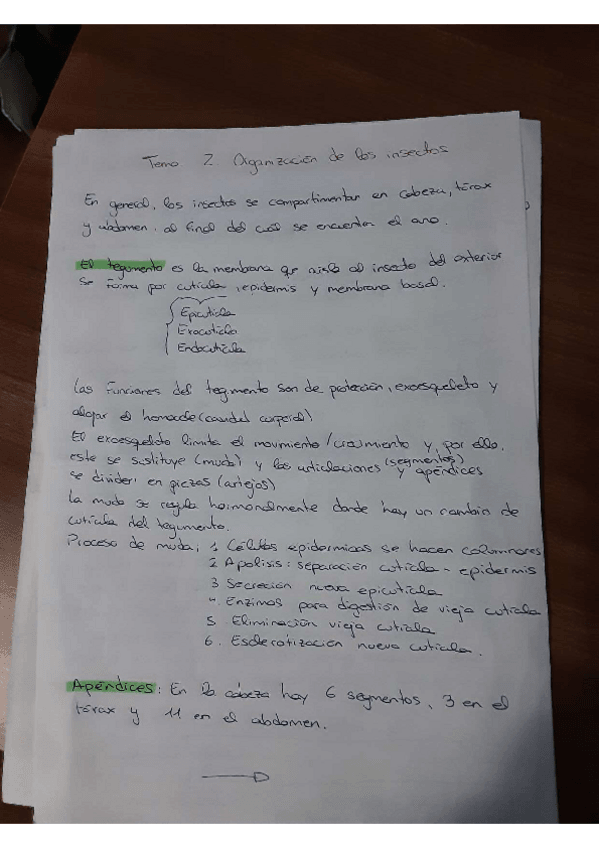 Tema 2 Organización de los insectos
En general, los insectos se compartimentan en cabeza, tórax
y abdomen, al final del cual se encuentra el ano.
El tegumento es la membrana que aisla al insecto del exterior
Se forma por cutícula, epidermis y membrana basal.
Epicutícula
Exocutícula
Endocutícula
Las Funciones del tegmento son de protección, exoesqueleto y
alojar el (caudal corporal)
El exoesqueleto limita el movimiento/crecimiento y, por ello,
este se sustituye (muda) y las articulaciones (segmentos) y apéndices
se dividen en piezas (artejos)
La muda se regula hormonalmente donde hay un cambio de
cutícula del tegumento.
Proceso de muda: 1 Células epidermicas se hacen columnares
2 Apolisis: separación cutícula - epidermis
3 Secreción nueva epicutícula
4. Enzimas para digestión de vieja cutícula
5. Eliminación vieja cutícula
6. Esclerotización nueva cutícula.
Apéndices: En la cabeza hay 6 segmentos, 3 en el
tórax y 11 en el abdomen.